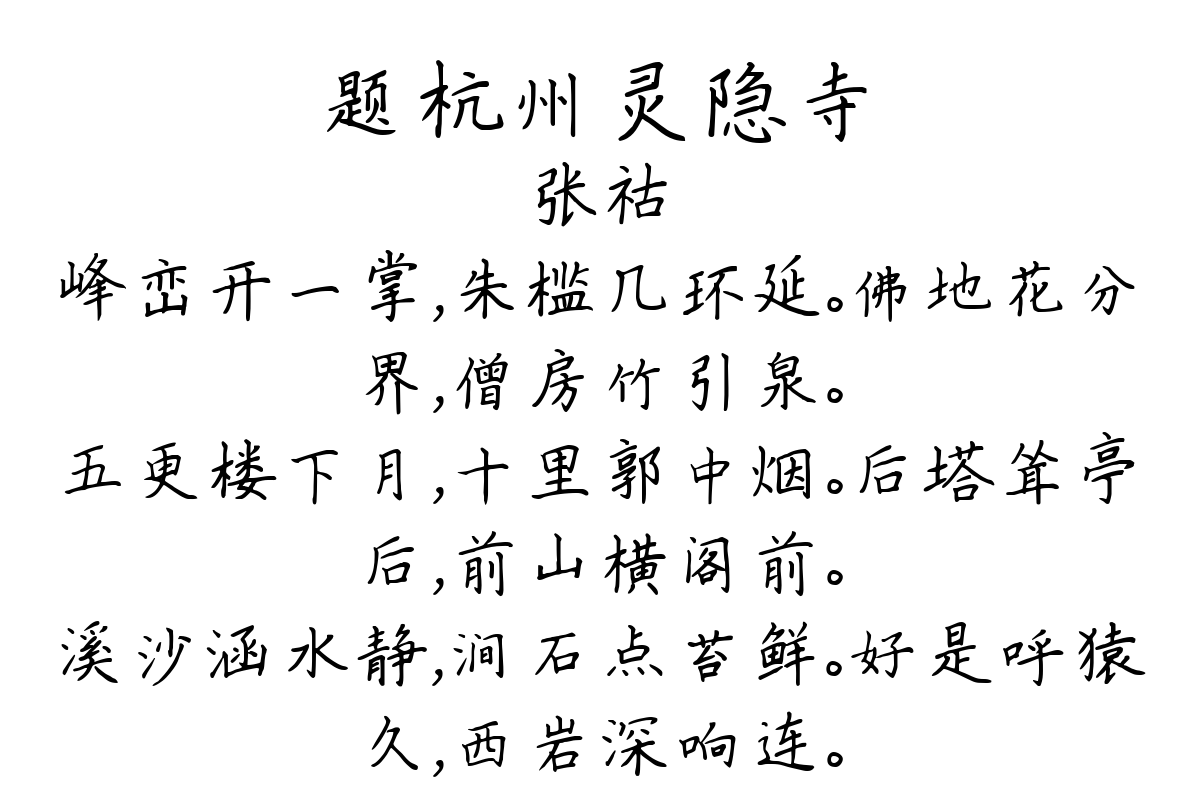 题杭州灵隐寺
张祜
峰峦开一掌,朱槛几环延。佛地花分
界,僧房竹引泉。
五更楼下月,十里郭中烟。后塔耸亭
后,前山横阁前。
溪沙涵水静,涧石点苔鲜。好是呼猿
久,西岩深响连。